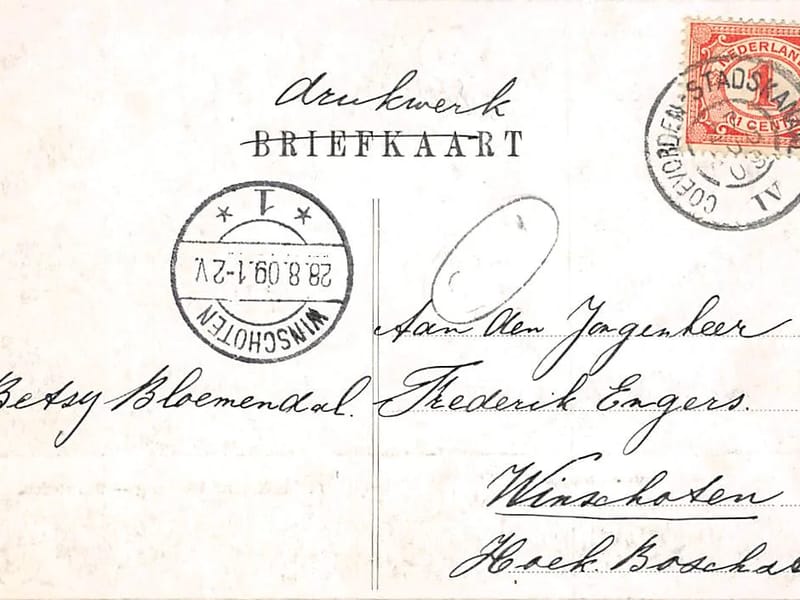 drukwerk
BRIEFKAART
NEDERLAND
1
CENT
COEVORDEN-STADSKANAAL
IV
1
28.8.09.1-2V.
WINSCHOTEN
Aan den Jongenheer
Betsy Bloemendal.
Frederik Engers.
Winschoten
Hoek Boscha